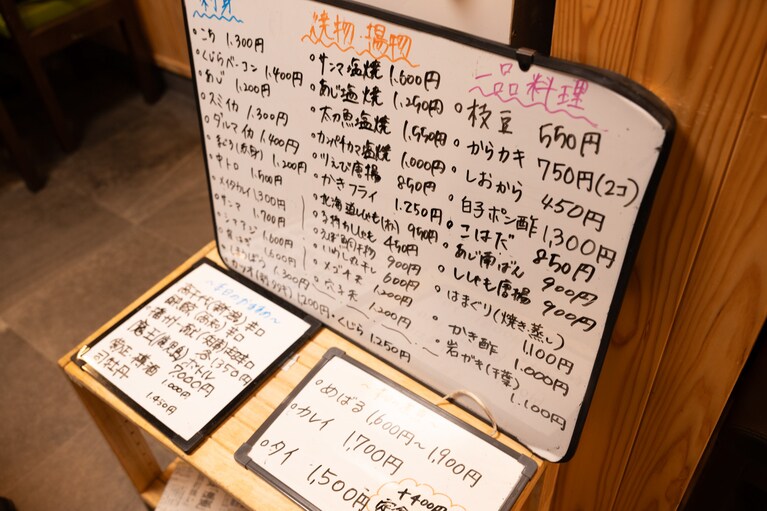 刺身
・こち 1,300円
・くじらベーコン 1,400円
・あじ 1,200円
・スミイカ 1,300円
・ダルマイカ 1,400円
・まぐろ(赤身) 1,200円
・中トロ 1,500円
・メイタカレイ 1,300円
・サンマ 1,700円
・シマアジ 1,600円
1,600円
・ほうぼう 1,300円
・カツオ 1,200円
・くじら 1,250円
焼物・揚物
・サンマ塩焼 1,600円
・あじ塩焼 1,250円
・太刀魚塩焼 1,550円
・カンパチカマ塩焼 1,000円
・川えび唐揚 850円
・かきフライ 1,250円
・北海道ししゃも 950円
・子持かしゃも 450円
900円
・いわし丸干し 600円
・メゴチ天 1,200円
・穴子天 1,200円
一品料理
・枝豆 550円
・からカキ 750円(2コ)
・しおから 450円
・白子ポン酢 1,300円
・こはだ 850円
・あじ南ばん 900円
・ししゃも唐揚 900円
・はまぐり(焼き蒸し) 1,100円
・かき酢 1,000円
・岩がき(千葉) 1,100円
〜本日のおすすめ〜
辛口
辛口
各1,350円
ボトル 7,000円
1,000円
司牡丹 1,450円
・めばる 1,600円〜1,900円
・カレイ 1,700円
・タイ 1,500円
+400円
定食